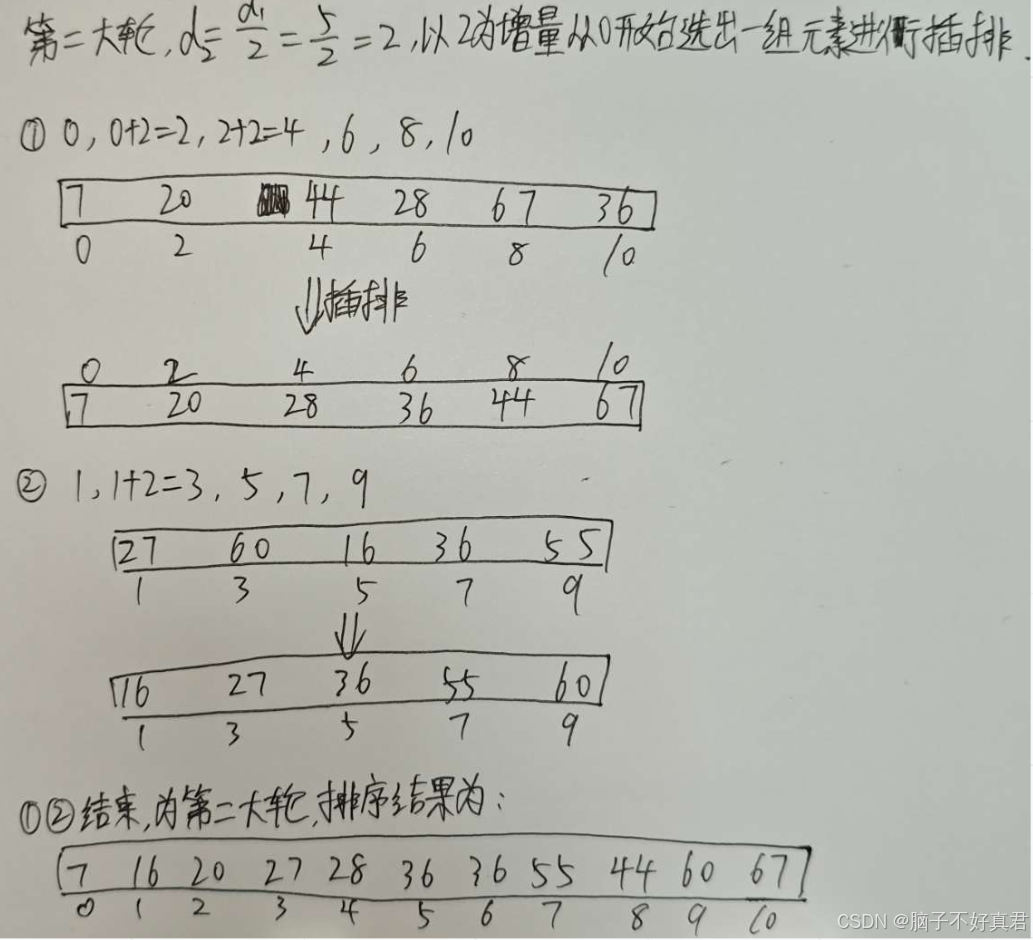 第二大轮, d₂=d₁/2=5/2=2, 以2为增量从0开始选出一组元素进行插排.
① 0, 0+2=2, 2+2=4, 6, 8, 10
7 20 44 28 67 36
0 2 4 6 8 10
⇓插排
0 2 4 6 8 10
7 20 28 36 44 67
② 1, 1+2=3, 5, 7, 9
27 60 16 36 55
1 3 5 7 9
⇓
16 27 36 55 60
1 3 5 7 9
①②结束,为第二大轮,排序结果为:
7 16 20 27 28 36 36 55 44 60 67
0 1 2 3 4 5 6 7 8 9 10
CSDN @脑子不好真君